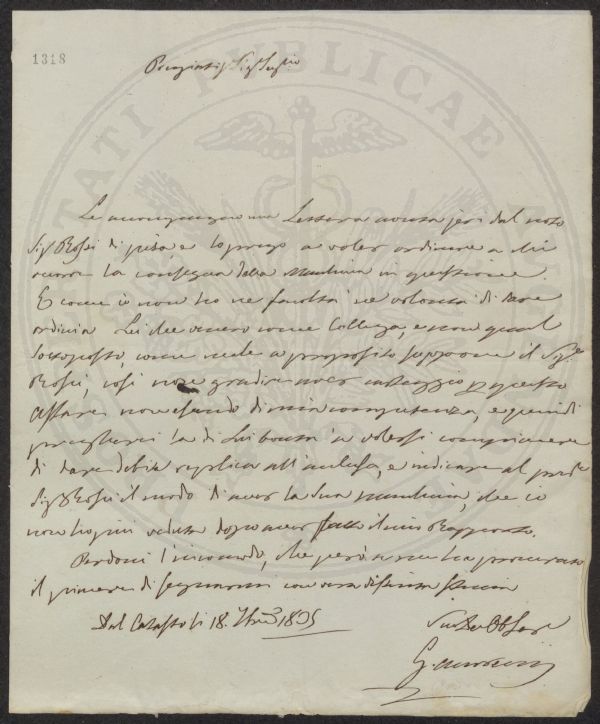 1318
Pregiatis. Sig. 
Le accompagno una Lettera avuta jeri dal noto
Sig. Rossi di Pisa, e lo prego a voler ordinare a chi
la consegna della macchina in questione.
E come io non ho ne facoltà ne volontà di dare
ordini a Lei che amo come Collega, e non qual
sottoposto, come male a proposito suppone il Sig.
Rossi, così non gradirei aver carteggio per questo
affare non essendo di mia competenza, e quindi
la di Lei bontà a volersi compiacere
di dare debita replica all'inclusa, e indicare al
Sig. Rossi il modo di aver la sua macchina, che io
non ho più veduta dopo aver fatto il mio Rapporto.
Perdoni l'incomodo, che però a me ha procurato
il piacere di segnarmi con vera distinta stima
Dal Catasto li 18. 1835
Suo